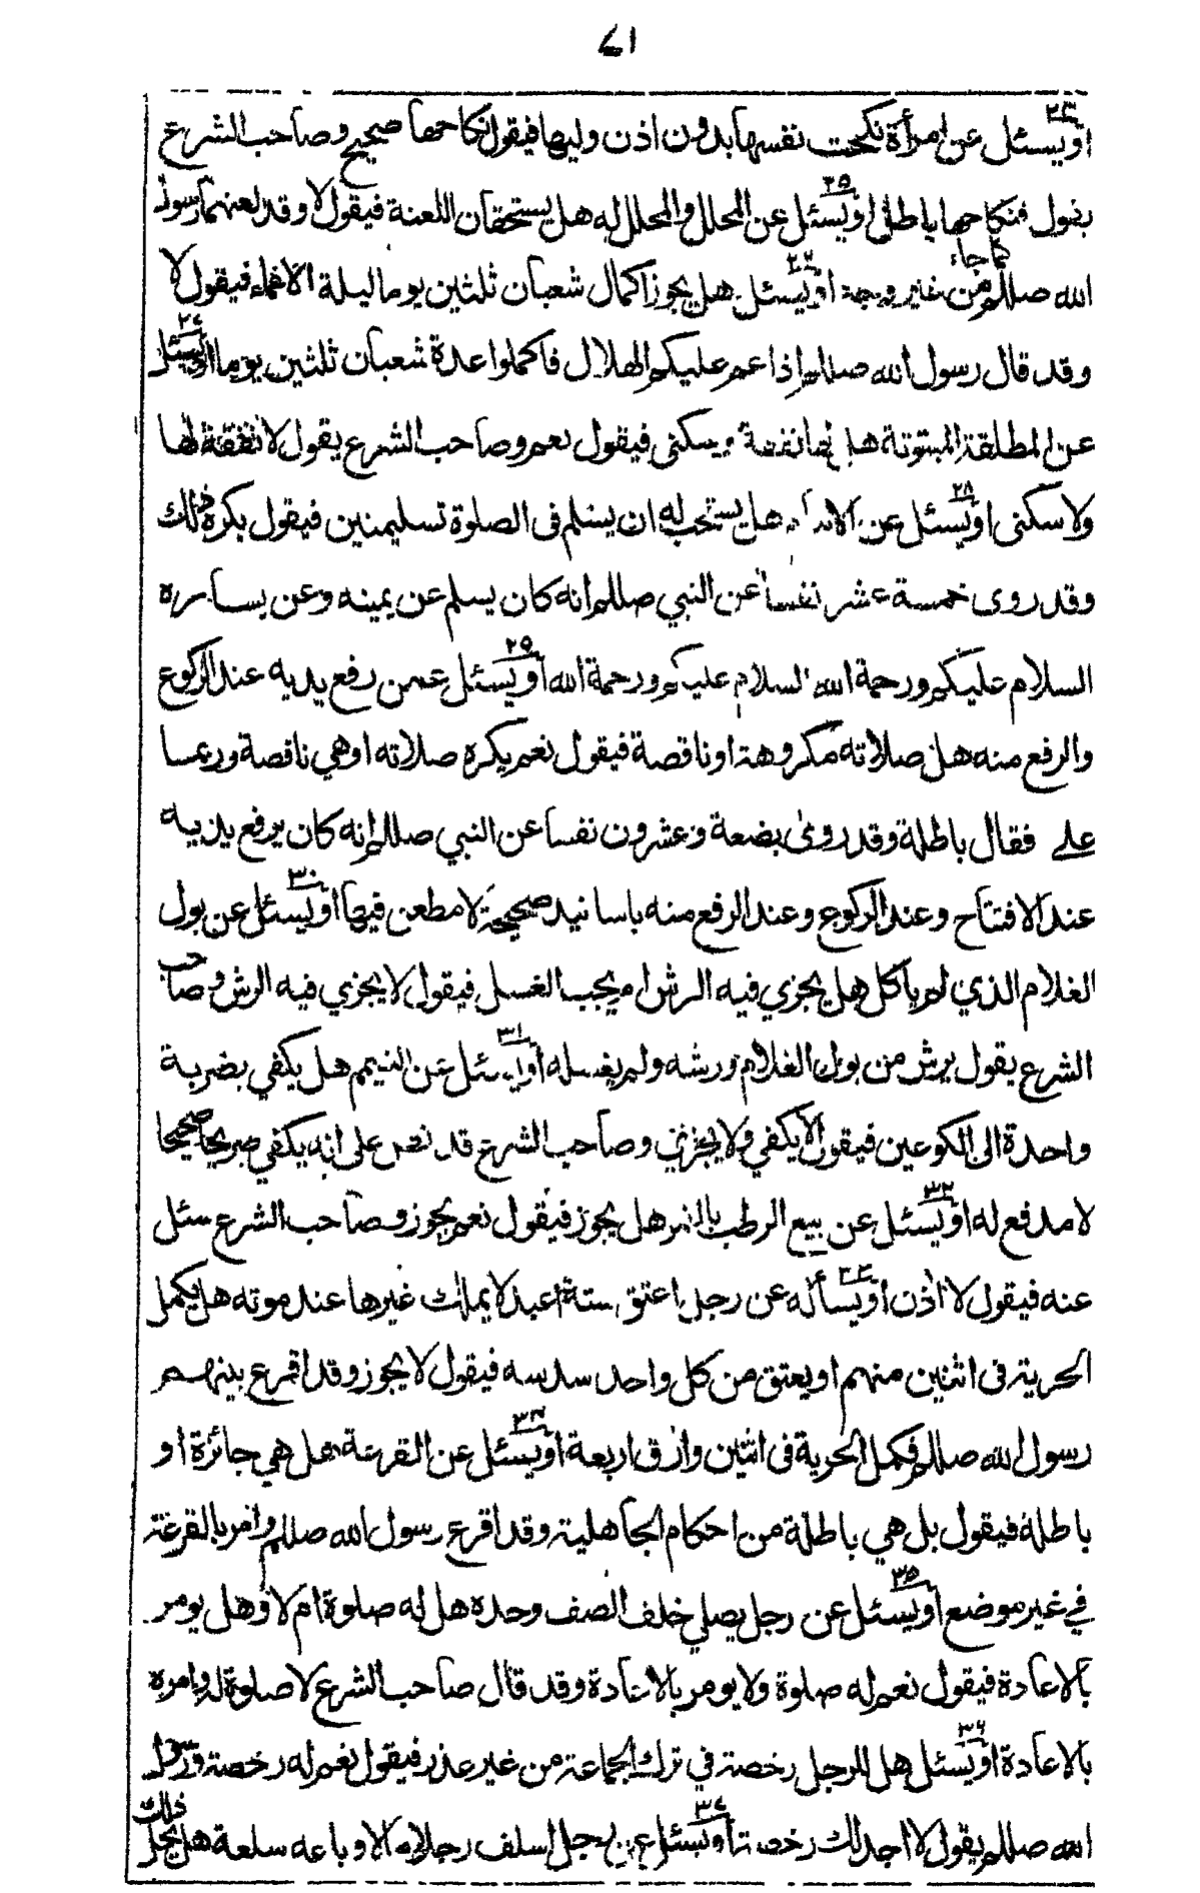 ٧١
٢٤
اويسئل عن امرأة نكحت نفسها بدون اذن وليها فيقول نكاحها صحيح وصاحب الشرع
٢٥
يقول فنكاحها باطل اويسئل عن المحلل والمحلل له هل يستحقان اللعنة فيقول لا وقد لعنهما رسول
كما جاء ٢٦
الله صللم من غير وجهة اويسئل هل يجوز اكمال شعبان ثلثين يوما ليلة الاغماء فيقول لا
٢٧
وقد قال رسول الله صللم اذا غم عليكم الهلال فاكملوا عدة شعبان ثلثين يوما اويسئل
عن المطلقة المبتوتة هل لها نفقة وسكنى فيقول نعم وصاحب الشرع يقول لا نفقة لها
٢٨
ولا سكنى اويسئل عن الامام هل يستحب له ان يسلم فى الصلوة تسليمتين فيقول يكره ذلك
وقد روى خمسة عشر نفسا عن النبي صللم انه كان يسلم عن يمينه وعن يساره
٢٩
السلام عليكم ورحمة الله السلام عليكم ورحمة الله اويسئل عمن رفع يديه عند الركوع
والرفع منه هل صلاته مكروهة او ناقصة فيقول نعم يكره صلاته او هي ناقصة وربما
على فقال باطلة وقد روى بضعة وعشرون نفسا عن النبي صللم انه كان يرفع يديه
٣٠
عند الافتتاح وعند الركوع وعند الرفع منه باسانيد صحيحة لا مطعن فيها اويسئل عن بول
الغلام الذي لم ياكل هل يجزي فيه الرش ام يجب الغسل فيقول لا يجزي فيه الرش وصاحب
٣١
الشرع يقول يرش من بول الغلام ورشه ولم يغسله اويسئل عن التيمم هل يكفي بضربة
واحدة الى الكوعين فيقول لا يكفي ولا يجزئ وصاحب الشرع قد نص على انه يكفي صريحا صحيحا
٣٢
لا مدفع له اويسئل عن بيع الرطب بالتمر هل يجوز فيقول نعم يجوز وصاحب الشرع سئل
٣٣
عنه فيقول لا اذن اويسأله عن رجل اعتق ستة اعبد لا يملك غيرها عند موته هل يكمل
الحرية فى اثنين منهم او يعتق من كل واحد سدسه فيقول لا يجوز وقد اقرع بينهم
٣٤
رسول الله صللم فكمل الحرية فى اثنين وارق اربعة اويسئل عن القرعة هل هي جائزة او
باطلة فيقول بل هي باطلة من احكام الجاهلية وقد اقرع رسول الله صللم وامر بالقرعة
٣٥
في غير موضع اويسئل عن رجل يصلي خلف الصف وحده هل له صلوة ام لا وهل يومر
بالاعادة فيقول نعم له صلوة ولا يومر بالاعادة وقد قال صاحب الشرع لا صلوة له وامره
٣٦
بالاعادة اويسئل هل للرجل رخصة في ترك الجماعة من غير عذر فيقول نعم له رخصة ورسول
٣٧ ذلك
الله صللم يقول لا اجد لك رخصة اويسئل عن رجل اسلف رجلا وباعه سلعة هل يحل